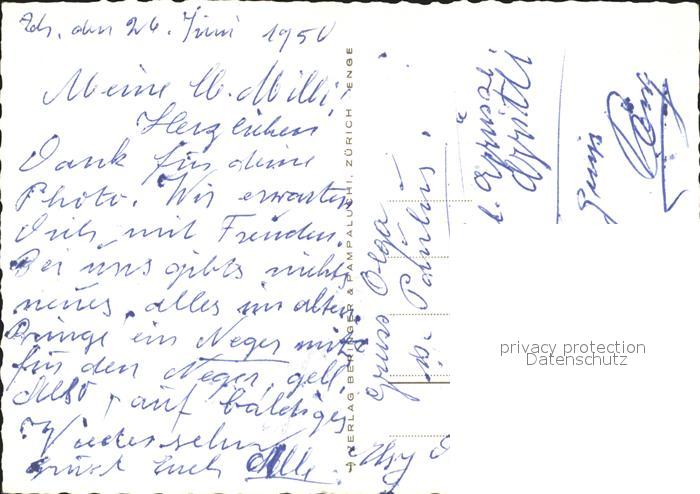 Zch. den 26. Juni 1950
Meine lb. Milli!
Herzlichen
Dank für deine
Photo. Wir erwarten
Dich mit Freuden.
Bei uns gibts nichts
neues, alles im alten
Bringe ein Neger mit
für den Neger, gell
Also, auf baldiges
Wiedersehn
grüsst Euch Alle.
VERLAG BERINGER & PAMPALUCHI, ZÜRICH ENGE
Gruss Olga
Gruss
privacy protection
Datenschutz